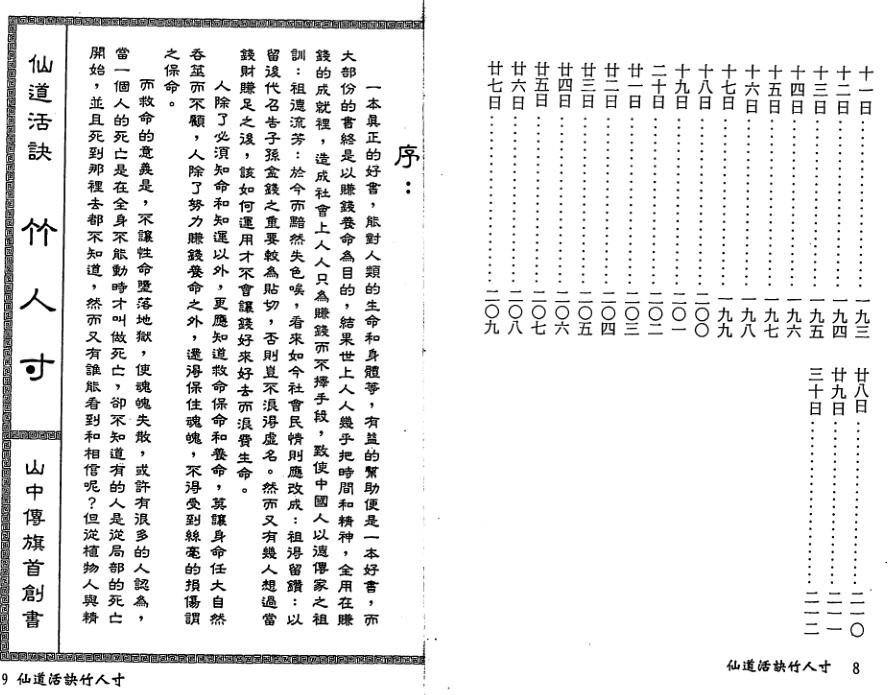 十一日……………………一九三
十二日……………………一九四
十三日……………………一九五
十四日……………………一九六
十五日……………………一九七
十六日……………………一九八
十七日……………………一九九
十八日……………………二〇〇
十九日……………………二〇一
二十日……………………二〇二
廿一日……………………二〇三
廿二日……………………二〇四
廿三日……………………二〇五
廿四日……………………二〇六
廿五日……………………二〇七
廿六日……………………二〇八
廿七日……………………二〇九
廿八日……………………二一〇
廿九日……………………二一一
三十日……………………二一二
仙道活訣竹人寸 8
序：
一本真正的好書，能對人類的生命和身體等，有益的幫助便是一本好書，而
大部份的書終是以賺錢養命為目的，結果世上人人幾乎把時間和精神，全用在賺
錢的成就裡，造成社會上人人只為賺錢而不擇手段，致使中國人以德傳家之祖
訓：祖德流芳：於今而黯然失色唉，看來如今社會民情則應改成：祖得留鑽：以
留後代召告子孫金錢之重要較為貼切，否則豈不浪得虛名。然而又有幾人想過當
錢財賺足之後，該如何運用才不會讓錢好來好去而浪費生命。
人除了必須知命和知運以外，更應知道救命保命和養命，莫讓身命任大自然
吞筮而不顧，人除了努力賺錢養命之外，還得保住魂魄，不得受到絲毫的損傷謂
之保命。
而救命的意義是，不讓性命墮落地獄，使魂魄失散，或許有很多的人認為，
當一個人的死亡是在全身不能動時才叫做死亡，卻不知道有的人是從局部的死亡
開始，並且死到那裡去都不知道，然而又有誰能看到和相信呢？但從植物人與精
仙道活訣 竹人寸
山中傳旗首創書
9 仙道活訣竹人寸